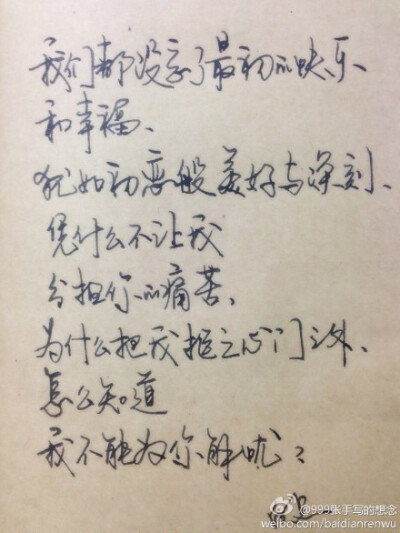 我们都没忘了最初的快乐、
和幸福、
犹如初恋般美好与深刻、
凭什么不让我
分担你的痛苦、
为什么把我拒之心门之外、
怎么知道
我不能为你解忧？
@999张手写的想念
weibo.com/baidianrenwu